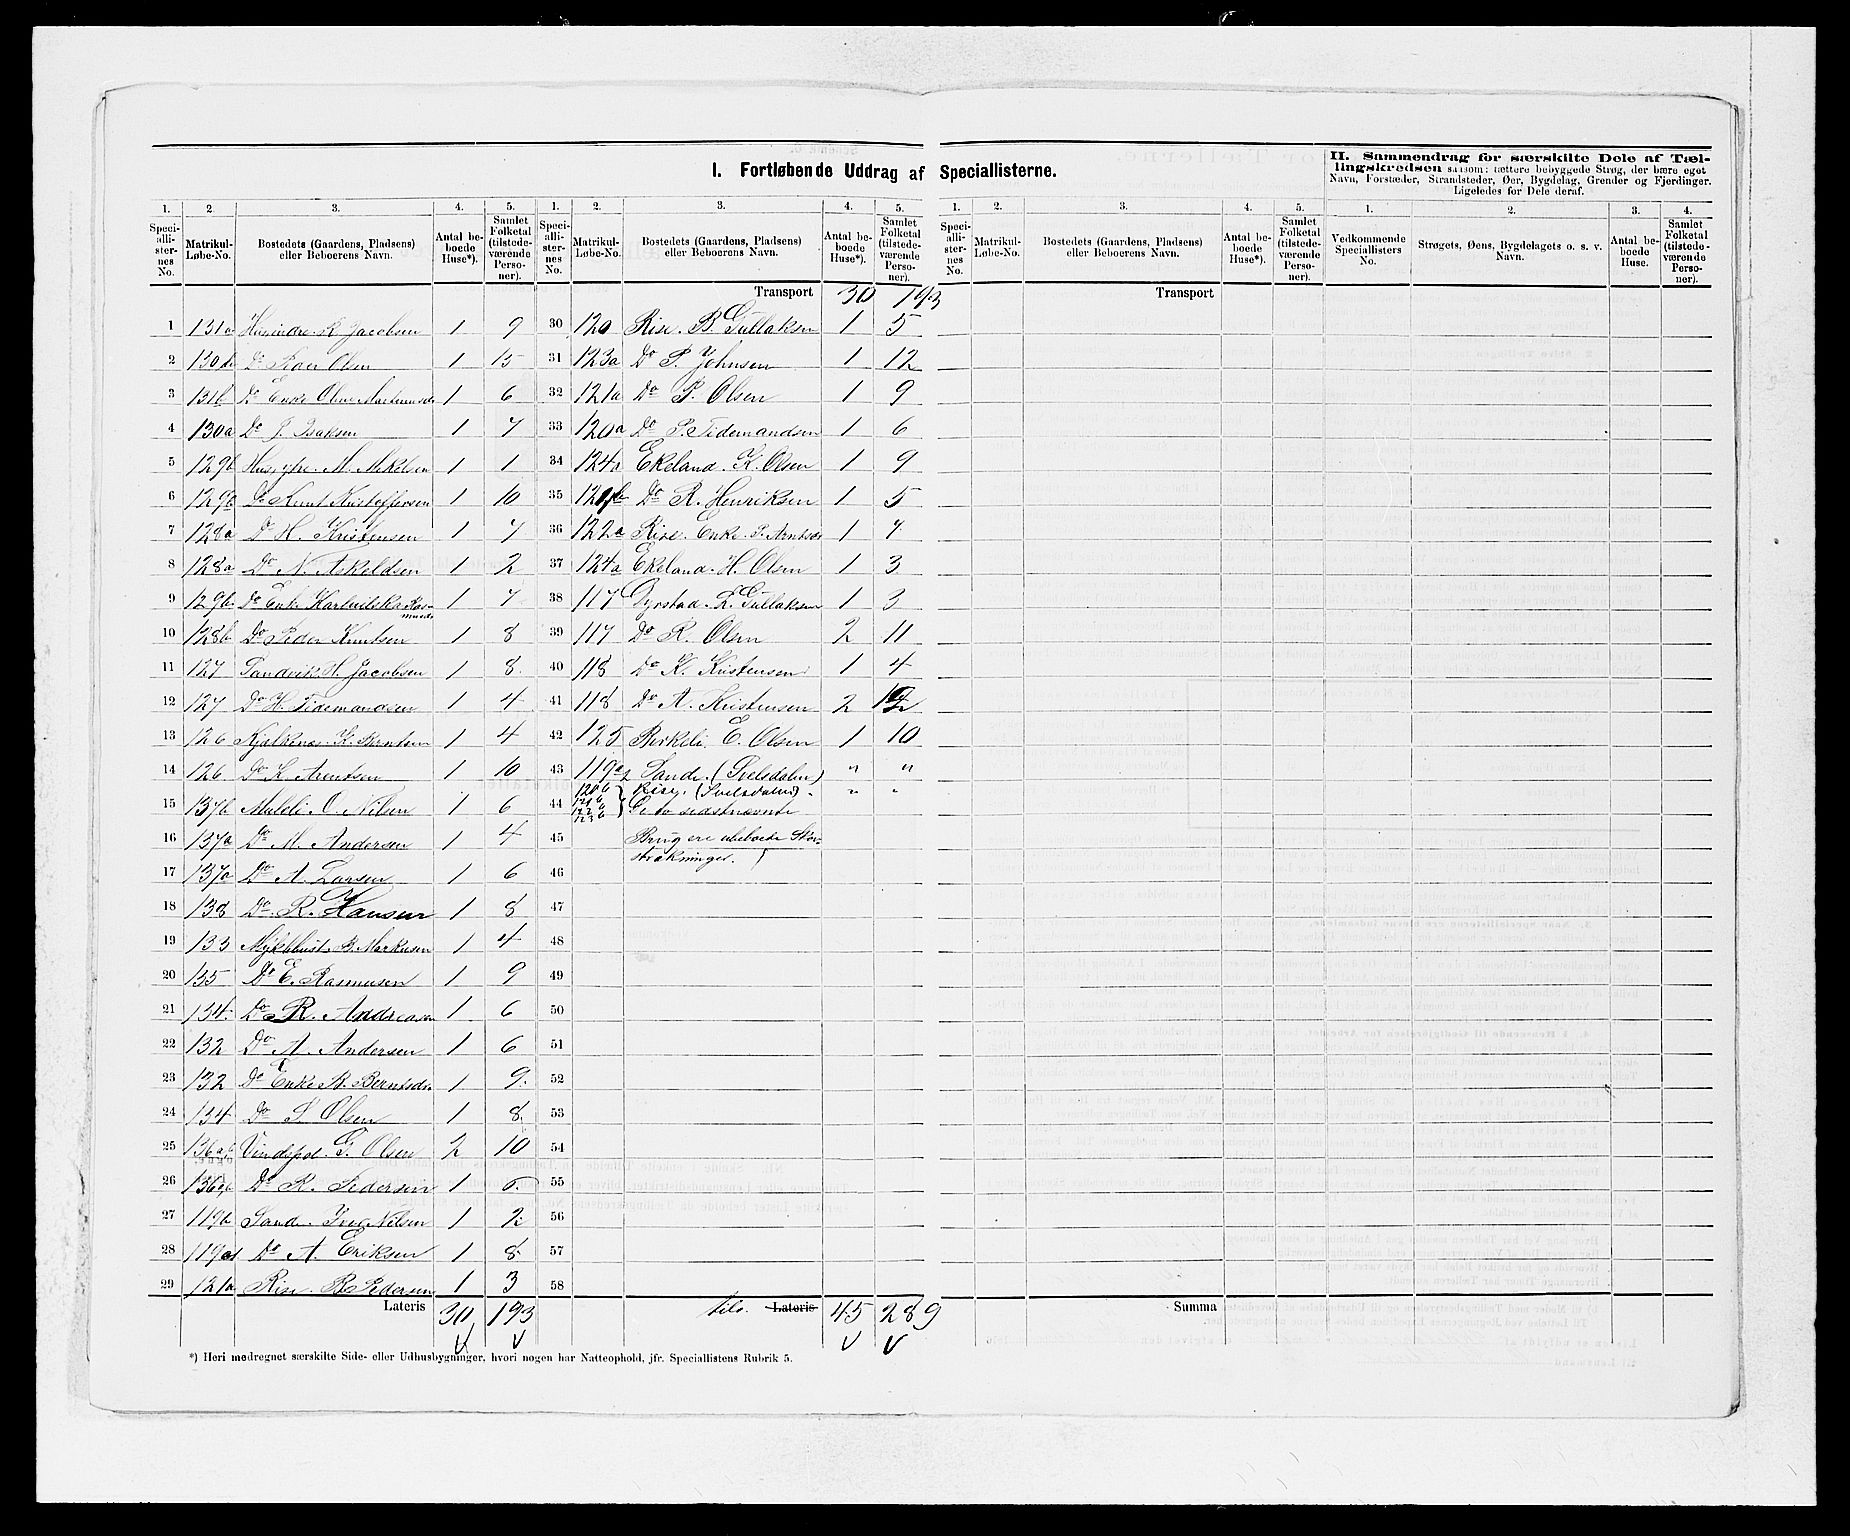 I. Fortløbende Uddrag af Speciallisterne.
II. Sammendrag for særskilte Dele af Tællingskredsen saasom: tættere bebyggede Strøg, der bære eget
Navn, Forstæder, Strandsteder, Øer, Bygdelag, Grender og Fjerdinger.
Ligeledes for Dele deraf.
1. 2. 3. 4. 5. 1. 2. 3. 4. 5. 1. 2. 3. 4. 5. 1. 2. 3. 4.
Speciallisternes No. Matrikul-Løbe-No. Bostedets (Gaardens, Pladsens) eller Beboerens Navn. Antal beboede Huse*). Samlet Folketal (tilstedeværende Personer).
Speciallisternes No. Matrikul-Løbe-No. Bostedets (Gaardens, Pladsens) eller Beboerens Navn. Antal beboede Huse*). Samlet Folketal (tilstedeværende Personer).
Speciallisternes No. Matrikul-Løbe-No. Bostedets (Gaardens, Pladsens) eller Beboerens Navn. Antal beboede Huse*). Samlet Folketal (tilstedeværende Personer).
Vedkommende Speciallisters No. Strøgets, Øens, Bygdelagets o. s. v. Navn. Antal beboede Huse. Samlet Folketal (tilstedeværende Personer).
1 131a R Jacobsen 1 9
2 Do Roer Olsen 1 15
3 131b Do Enke 1 6
4 130a Do J. Isaksen 1 7
5 129b M. Mikelsen 1 1
6 129b Do Knut Kristoffersen 1 10
7 128a Do H. Kristensen 1 7
8 128a Do N. Askeldsen 1 2
9 129b Do Enke 1 7
10 128b Do Peder Knutsen 1 8
11 127 Sandvik H. Jacobsen 1 8
12 127 Do H. Tidemandsen 1 4
13 126 K. 1 4
14 126 Do K. Arentsen 1 10
15 137b O. Nilsen 1 6
16 137a Do M. Andersen 1 4
17 137a Do A. Larsen 1 6
18 138 Do R. Hansen 1 8
19 133 Myklebust B. Markusen 1 4
20 135 Do E. Rasmusen 1 9
21 134 Do R. Andreasen 1 6
22 132 Do A. Andersen 1 6
23 132 Do Enke M. Berntsdr. 1 9
24 134 Do S. Olsen 1 8
25 136a,b Vindspol G. Olsen 2 10
26 136a,b Do R. Pedersen 1
27 119b Sande Iver Nilsen 1 2
28 119a Do A. Eriksen 1 8
29 121a Rise B. Pedersen 1 3
Lateris 30 193
Transport 30 193
30 120 Rise. B. Gullaksen 1 5
31 123a Do P. Johnsen 1 12
32 121a Do P. Olsen 1 9
33 120a Do P. Tidemandsen 1 6
34 124a Ekeland. K. Olsen 1 9
35 Do R. Henriksen 1 5
36 122a Rise. Enke P. Arntsdr 1 7
37 124a Ekeland. H. Olsen 1 3
38 117 Dyrstad. L. Gullaksen 1 3
39 117 Do R. Olsen 2 11
40 118 Do K. Kristensen 1 4
41 118 Do A. Kristensen 2
42 125 Birkeli E. Olsen 1 10
43 119a2 Sande. (Svelsdalen) " "
120b Rise. (Svelsdalen) " "
44 121b 122b 123b De to sidstnævnte
45 Brug ere ubeboede
strækninger.
46
47
48
49
50
51
52
53
54
55
56
57
58
Lateris 45 289
Transport
Summa
*) Heri medregnet særskilte Side- eller Udhusbygninger, hvori nogen har Natteophold, jfr. Speciallistens Rubrik 5.